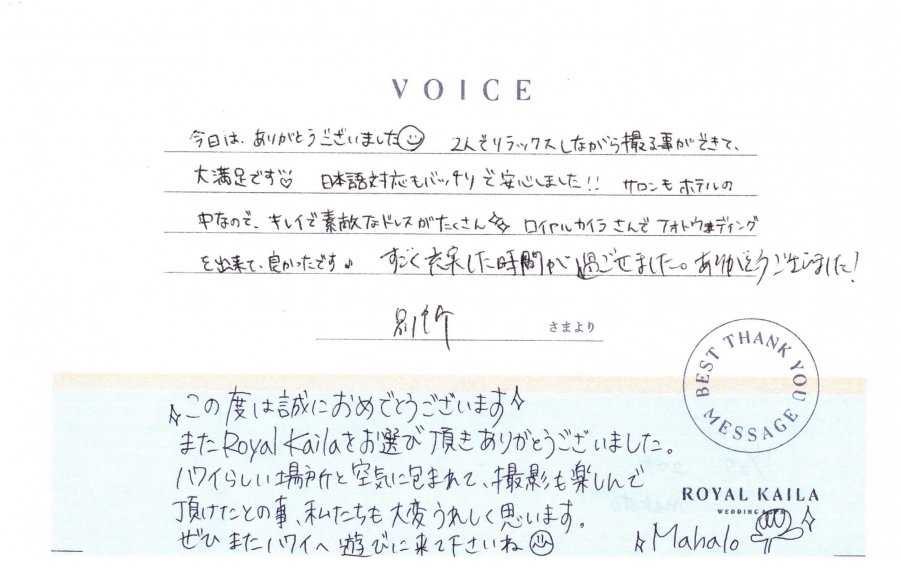 VOICE
今日は、ありがとうございました 2人でリラックスしながら撮る事ができて、
大満足です♡ 日本語対応もバッチリで安心しました!! サロンもホテルの
中なので、キレイで素敵なドレスがたくさん ロイヤルカイラさんでフォトウェディング
を出来て、良かったです♪ すごく充実した時間が過ごせました。ありがとうございました!
さまより
BEST THANK YOU MESSAGE
この度は誠におめでとうございます
またRoyal Kailaをお選び頂きありがとうございました。
ハワイらしい場所と空気に包まれて、撮影も楽しんで
頂けたとの事、私たちも大変うれしく思います。
ぜひまたハワイへ遊びに来て下さいね
ROYAL KAILA
WEDDING
Mahalo